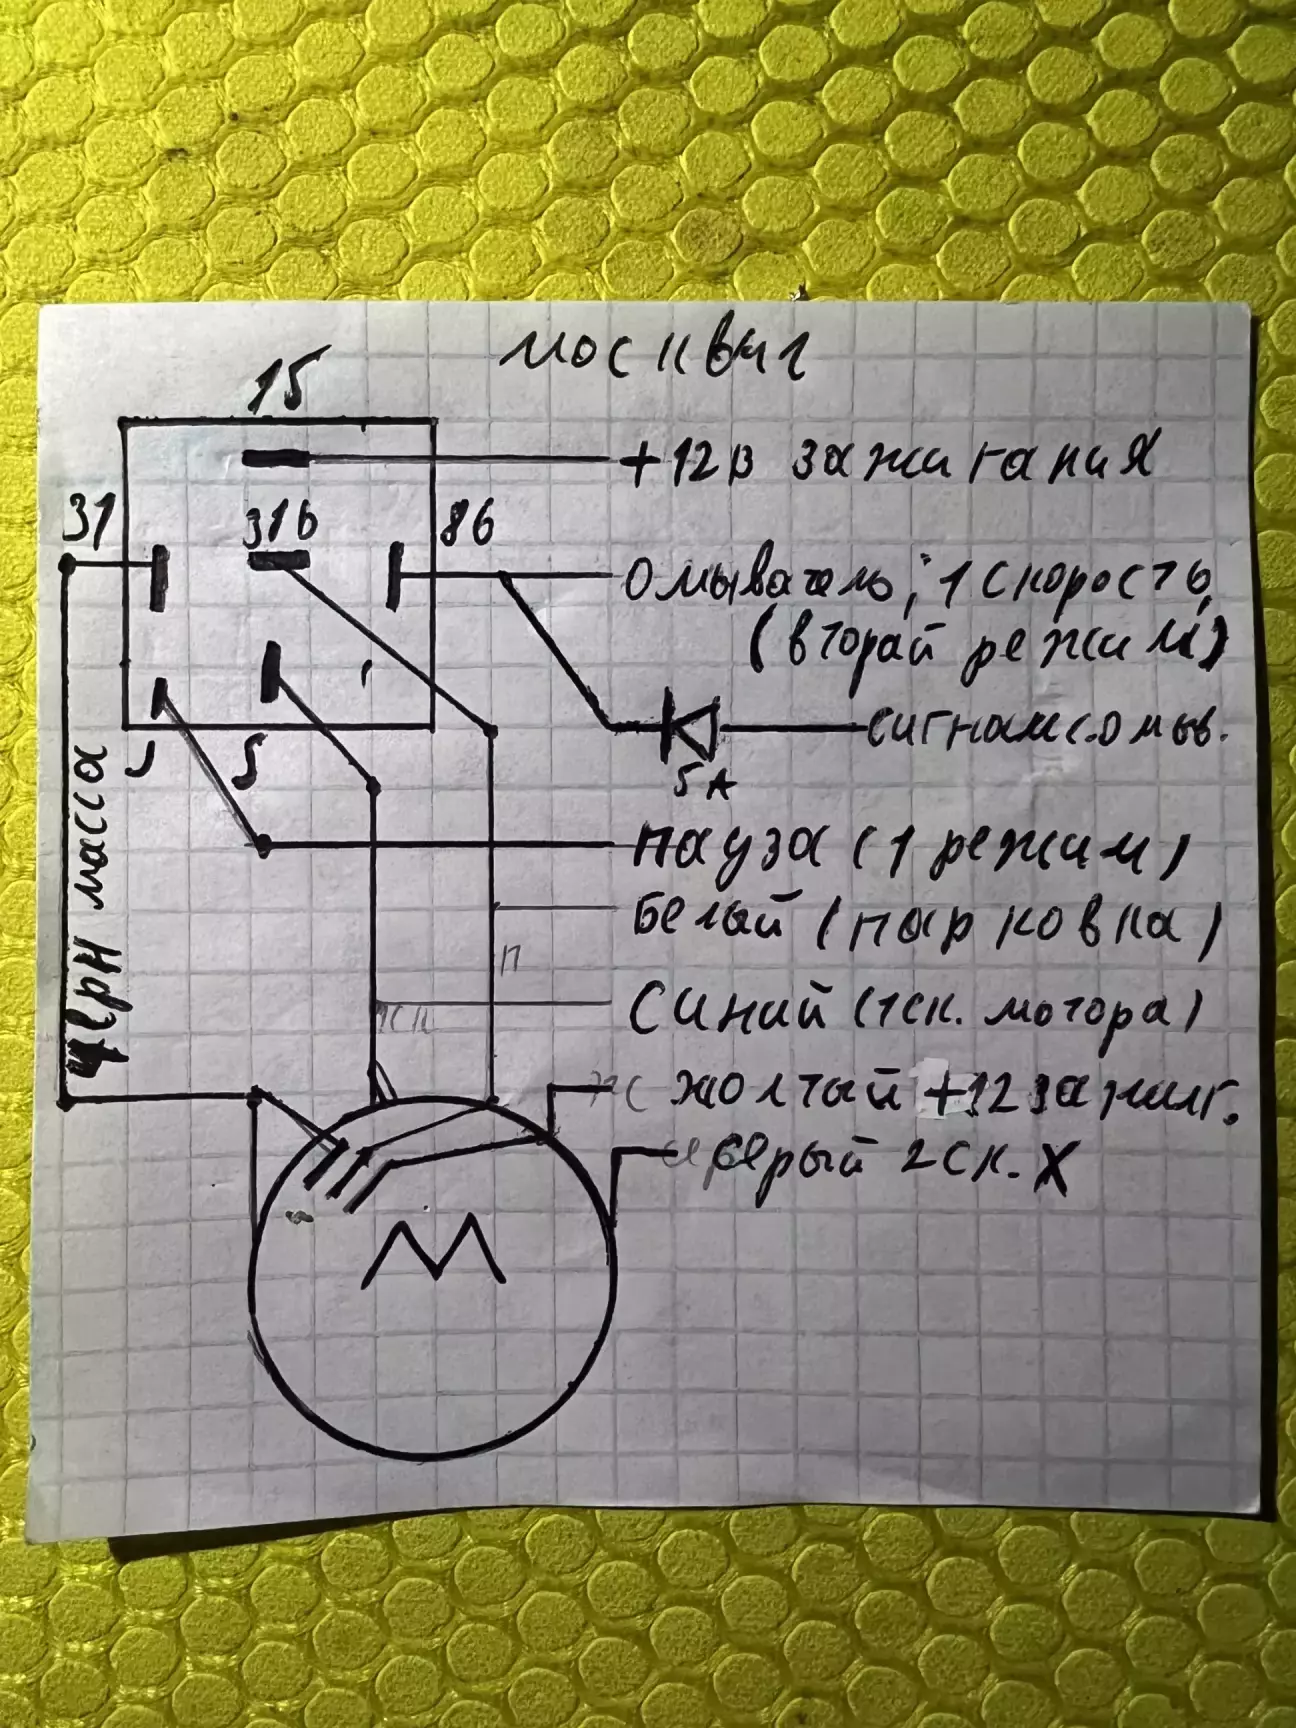 москвич
15
+12в зажигания
31
31b
86
Омыватель, 1 скорость,
(второй режим)
сигнал с.омыв.
J
S
5А
пауза (1 режим)
Белый (парковка)
п
Синий (1ск. мотора)
1ск
жолтый +12 зажиг.
серый 2 ск. X
черн масса
М